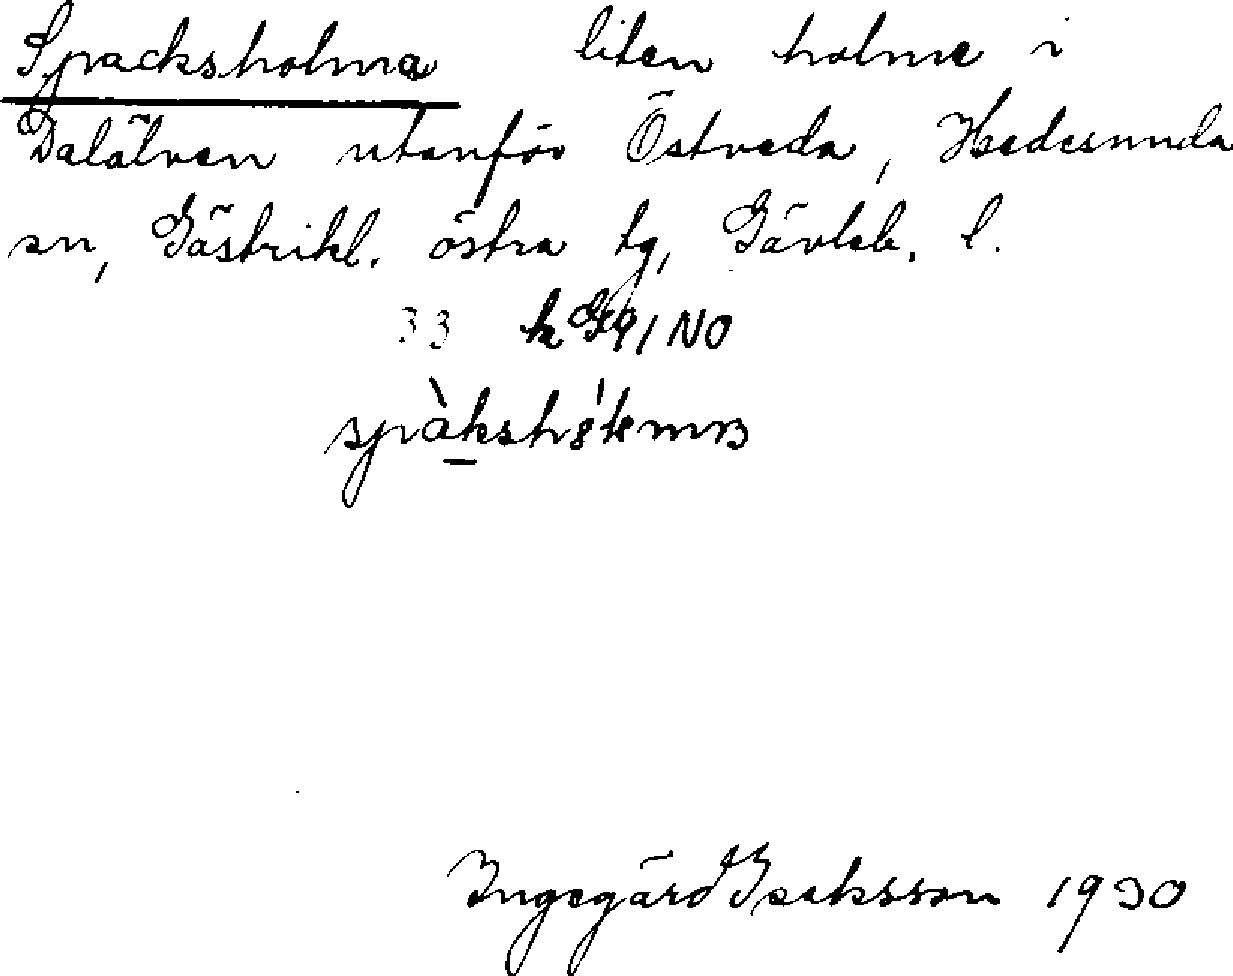 Spracksholma liten holme i
Dalälven utanför Östveda, Hedesunda
sn, Gästrikl. östra tg, Gävleb. l.
33 k 91 NO
Ingegärd Isaksson 1930